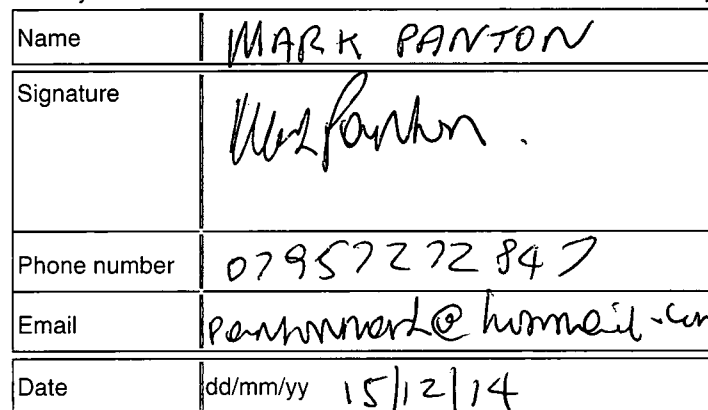 Name MARK PANTON
Signature Mark Panton.
Phone number 07957272847
Email pantonmark@hotmail.com
Date dd/mm/yy 15/12/14